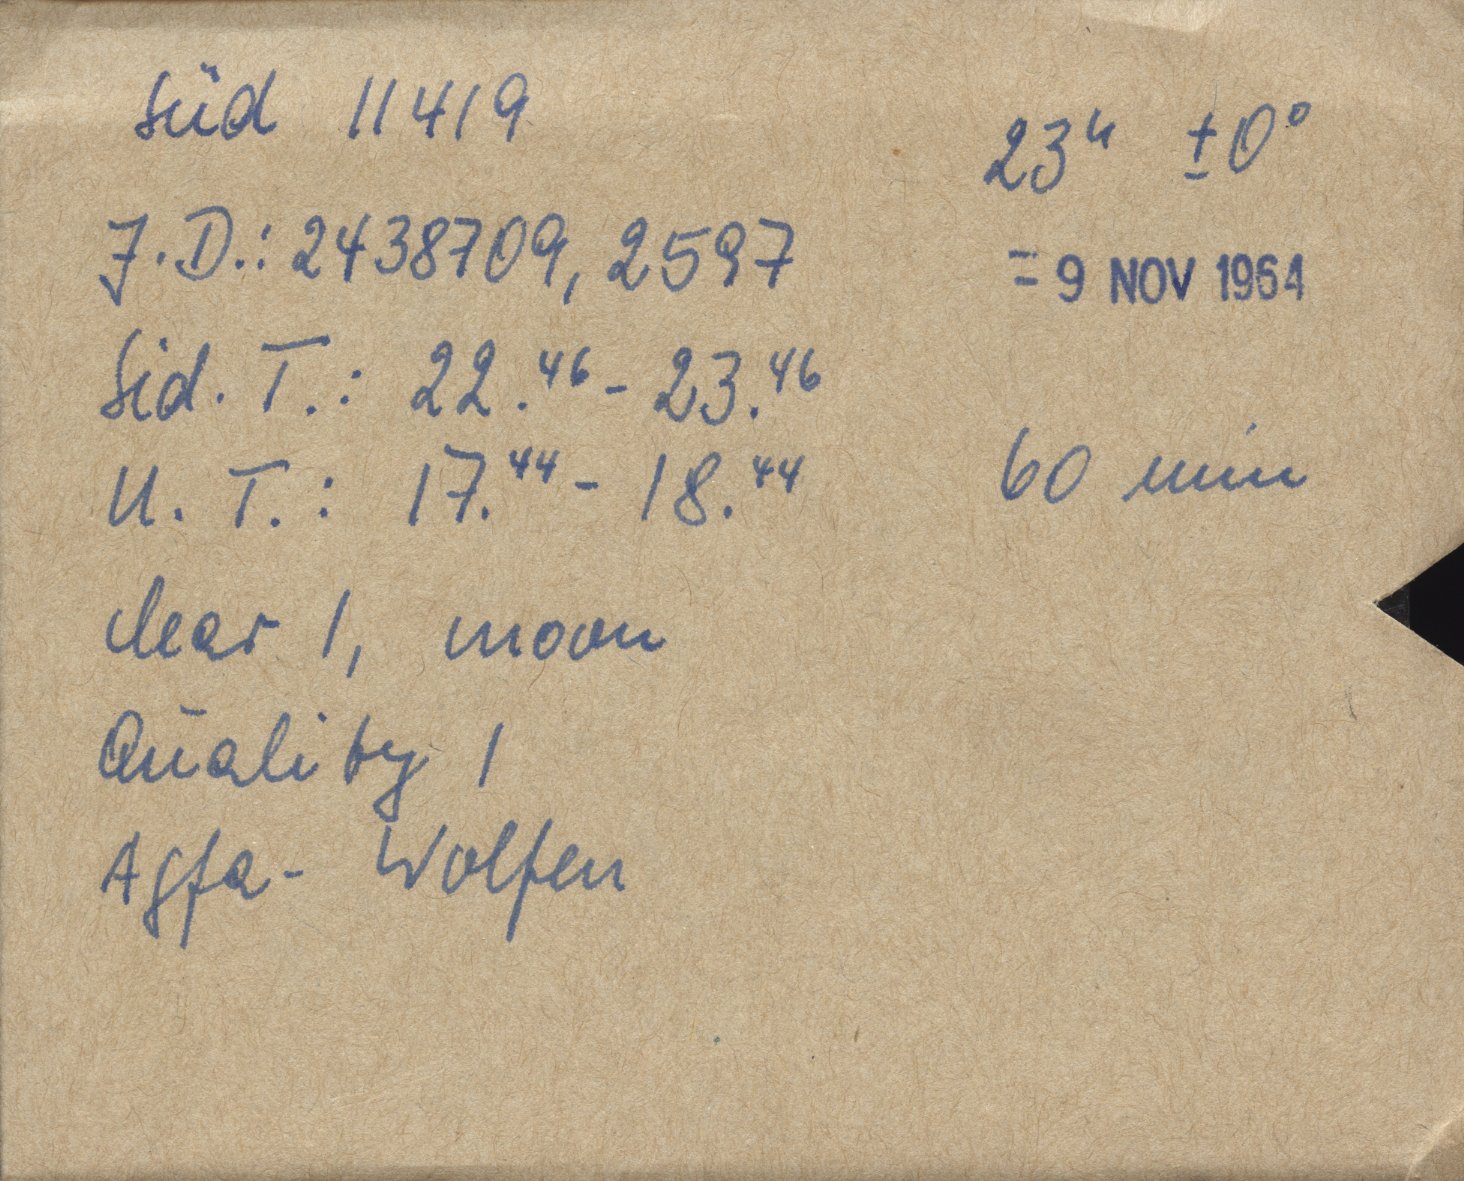 Süd 11419
23h ±0°
J.D.: 2438709,2597
= 9 NOV 1964
Sid. T.: 22.46 - 23.46
U. T.: 17.44 - 18.44
60 min
clear 1, moon
Quality 1
Agfa- Wolfen